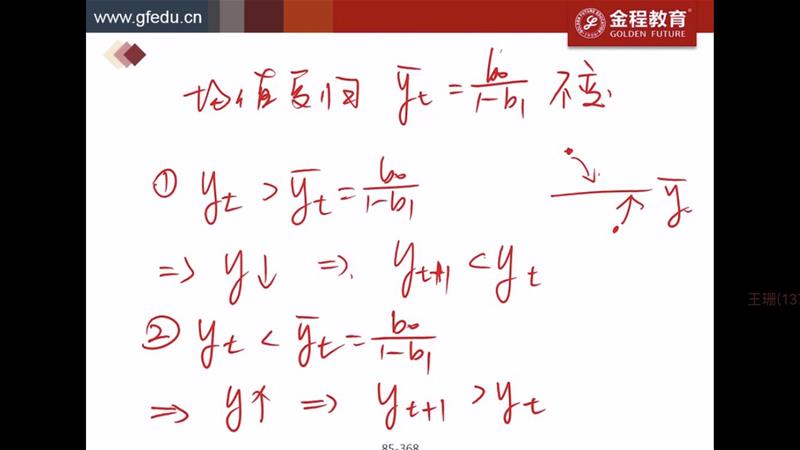 www.gfedu.cn
金程教育
GOLDEN FUTURE
均值复归 ȳt = b0/(1-b1) 不变
① yt > ȳt = b0/(1-b1)
ȳ
⇒ y↓ ⇒ yt+1 < yt
② yt < ȳt = b0/(1-b1)
⇒ y↑ ⇒ yt+1 > yt
王珊(137
85-368